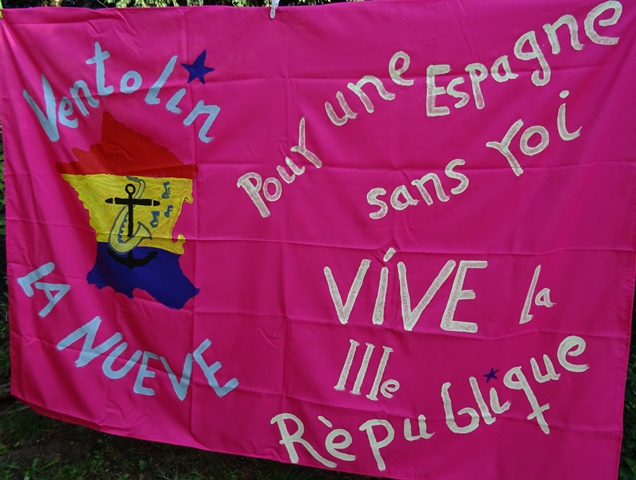 Ventolin
LA NUEVE
Pour une Espagne
sans roi
VIVE la
IIIe
Rèpublique